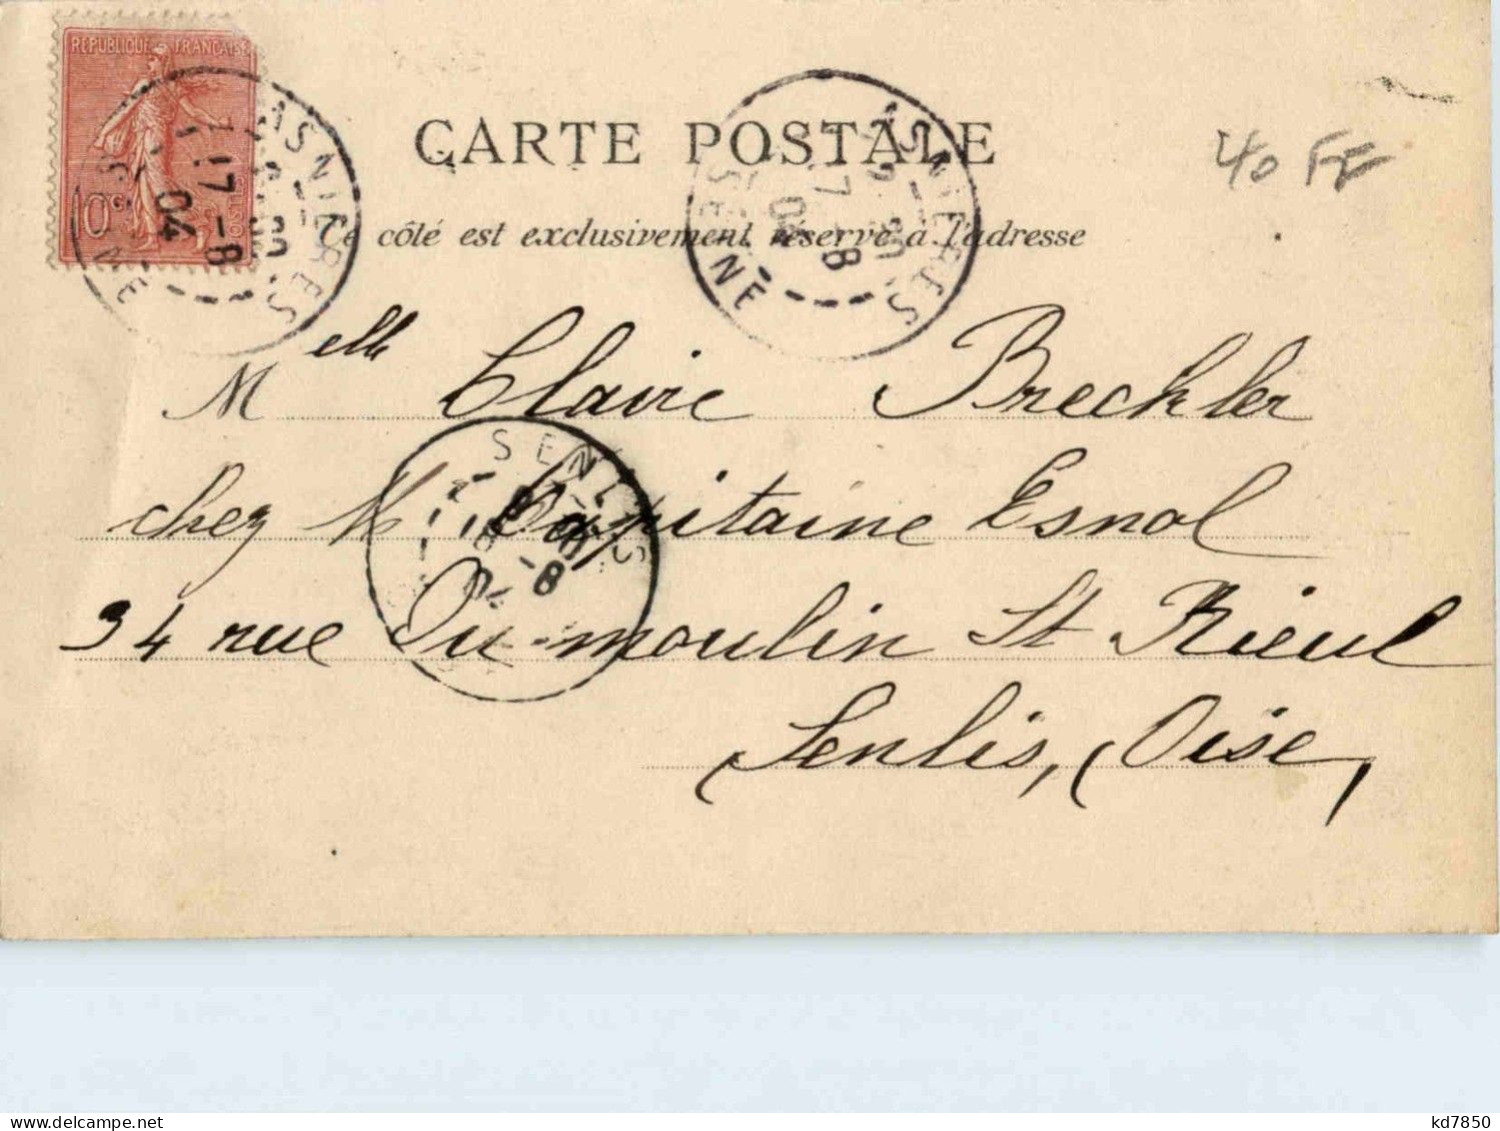 REPUBLIQUE FRANÇAISE
10c
POSTES
ASNIERES
17-8
04
SEINE
CARTE POSTALE
ASNIERES
17-8
04
SEINE
40 FF
Ce côté est exclusivement réservé à l'adresse
Melle Claire Brechler
chez M Capitaine Esnol
34 rue Du moulin St Rieul
Senlis, Oise,
SENLIS
-8
04
kd7850